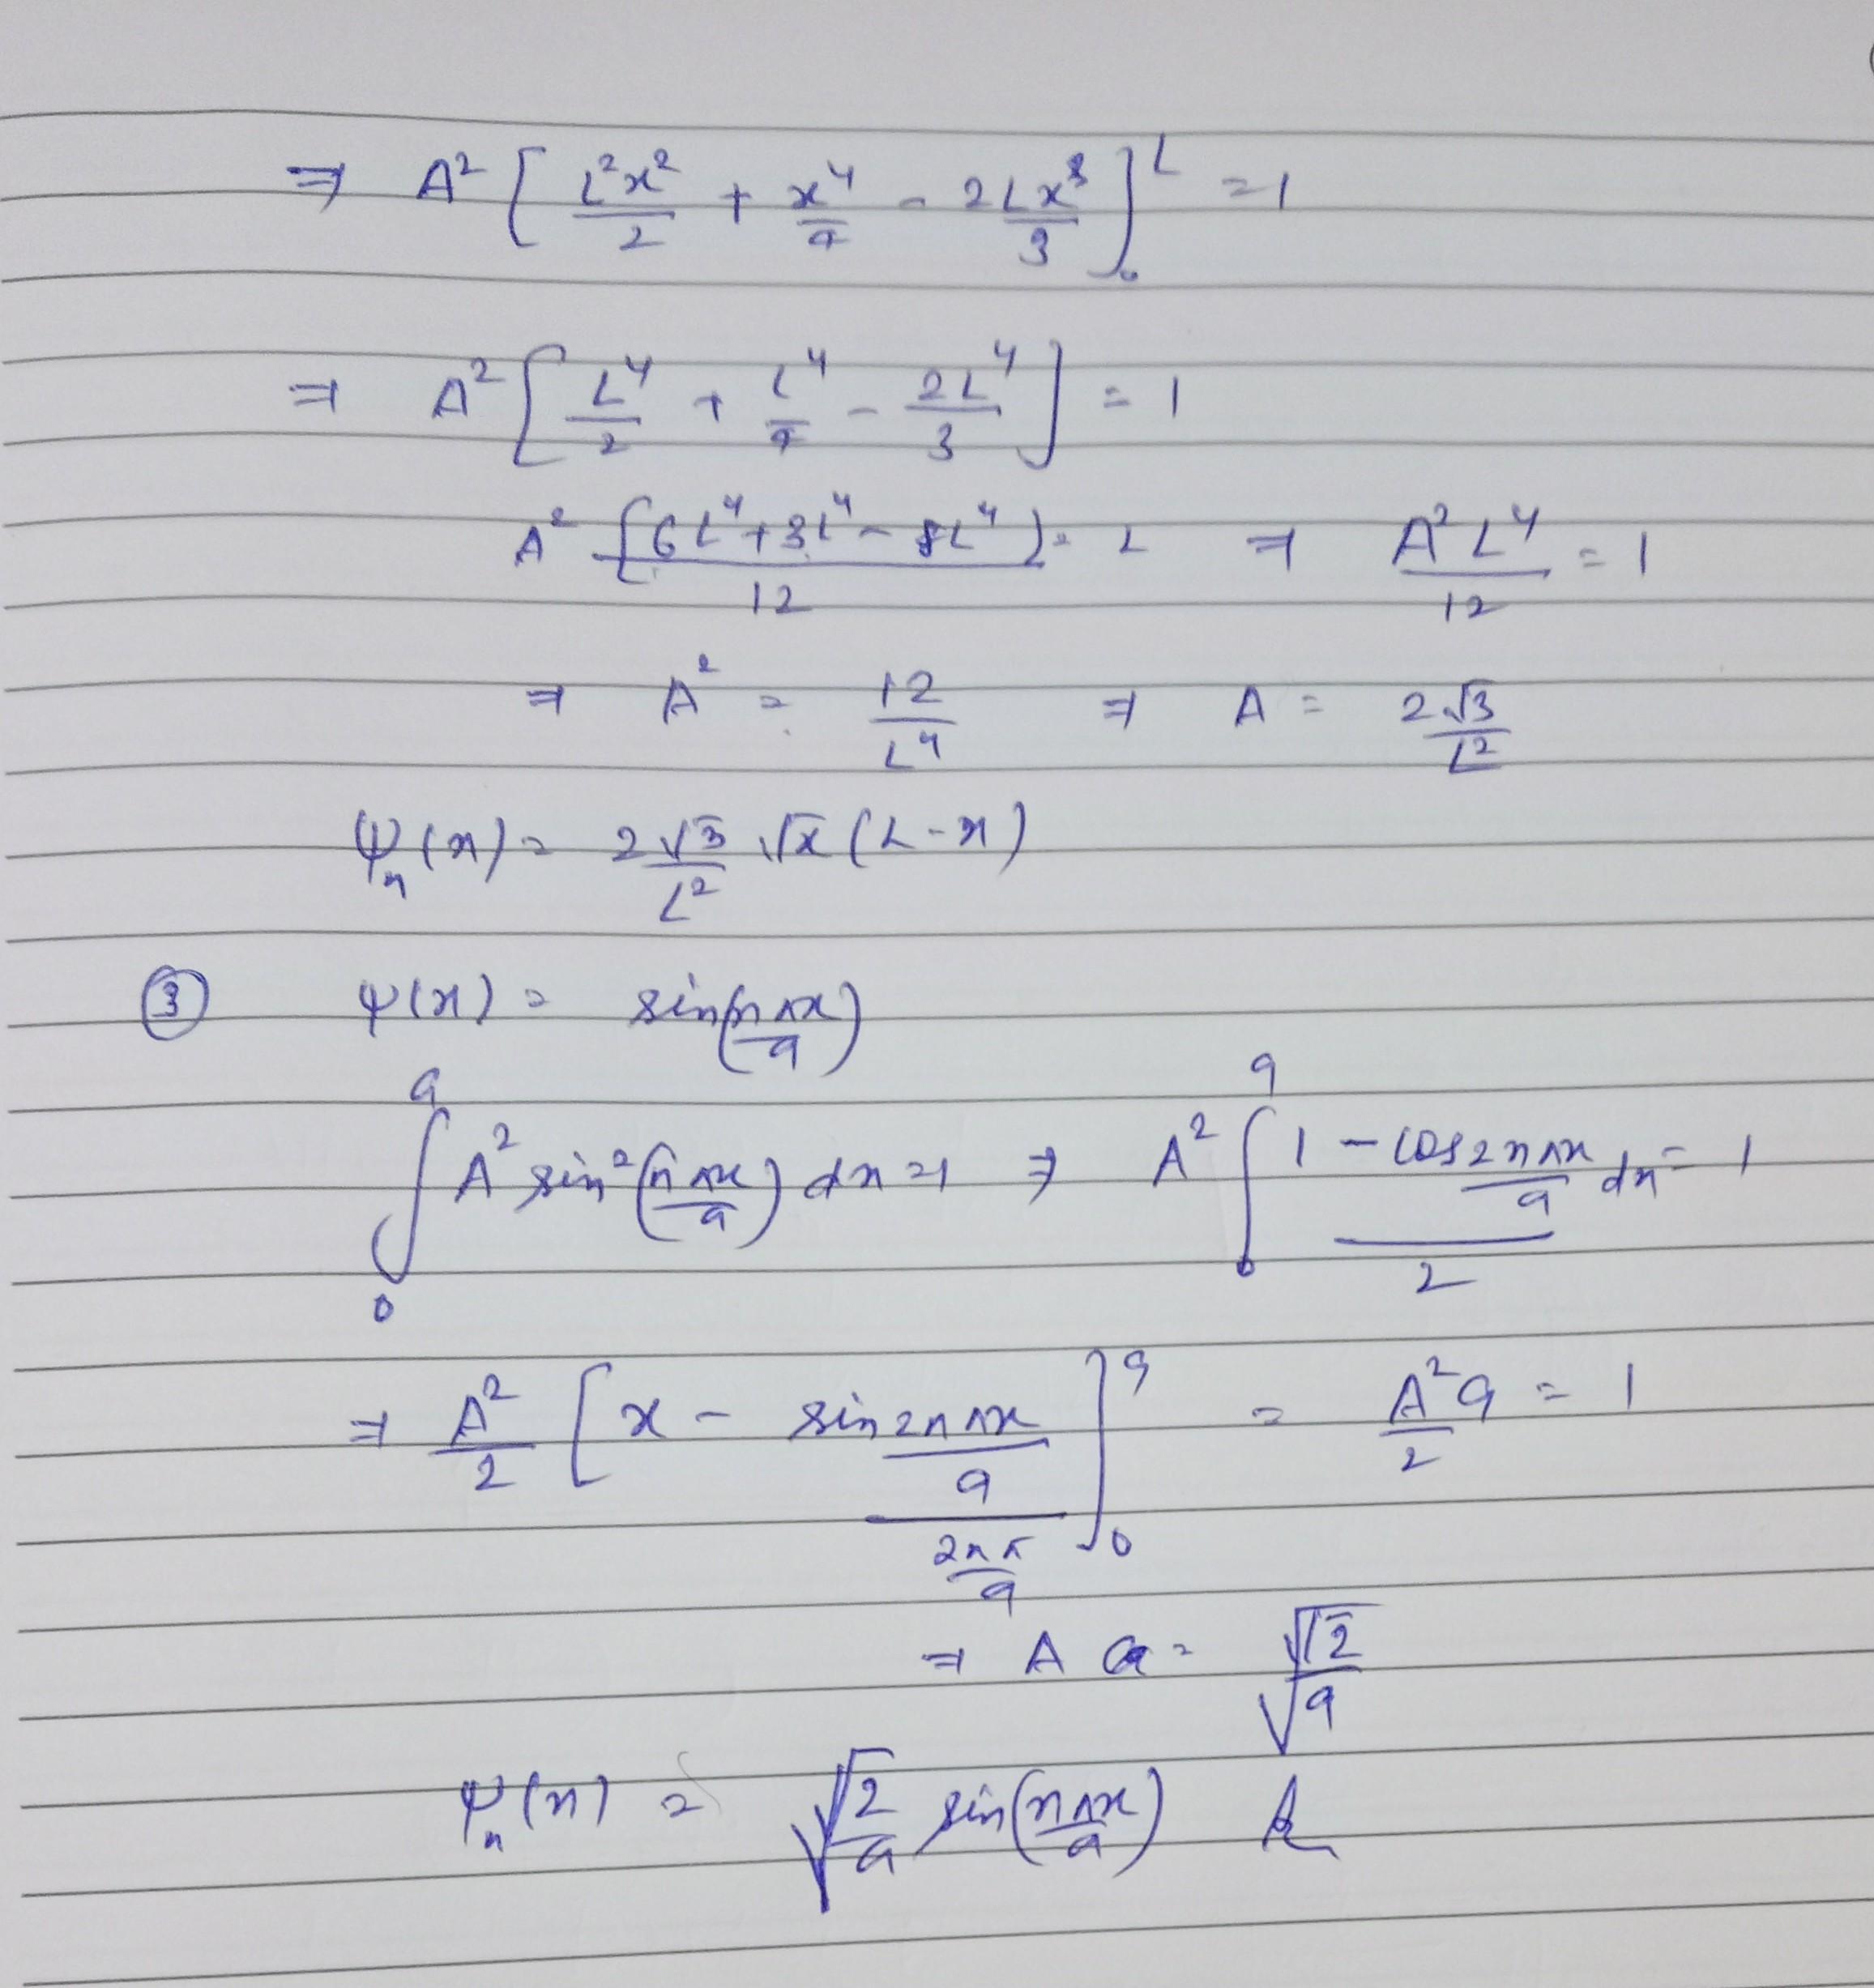 ⇒ A² [ L²x²/2 + x⁴/4 - 2Lx³/3 ]₀ᴸ = 1
⇒ A² [ L⁴/2 + L⁴/4 - 2L⁴/3 ] = 1
A² [6L⁴ + 3L⁴ - 8L⁴]/12 = 1 ⇒ A²L⁴/12 = 1
⇒ A² = 12/L⁴ ⇒ A = 2√3/L²
ψₙ(x) = 2√3/L² √x (L-x)
③ ψ(x) = sin(nπx/a)
∫₀ᵃ A² sin²(nπx/a) dx = 1 ⇒ A² ∫₀ᵃ (1 - cos 2nπx/a)/2 dx = 1
⇒ A²/2 [ x - (sin 2nπx/a)/(2nπ/a) ]₀ᵃ = A²a/2 = 1
⇒ A = √(2/a)
ψₙ(x) = √(2/a) sin(nπx/a)